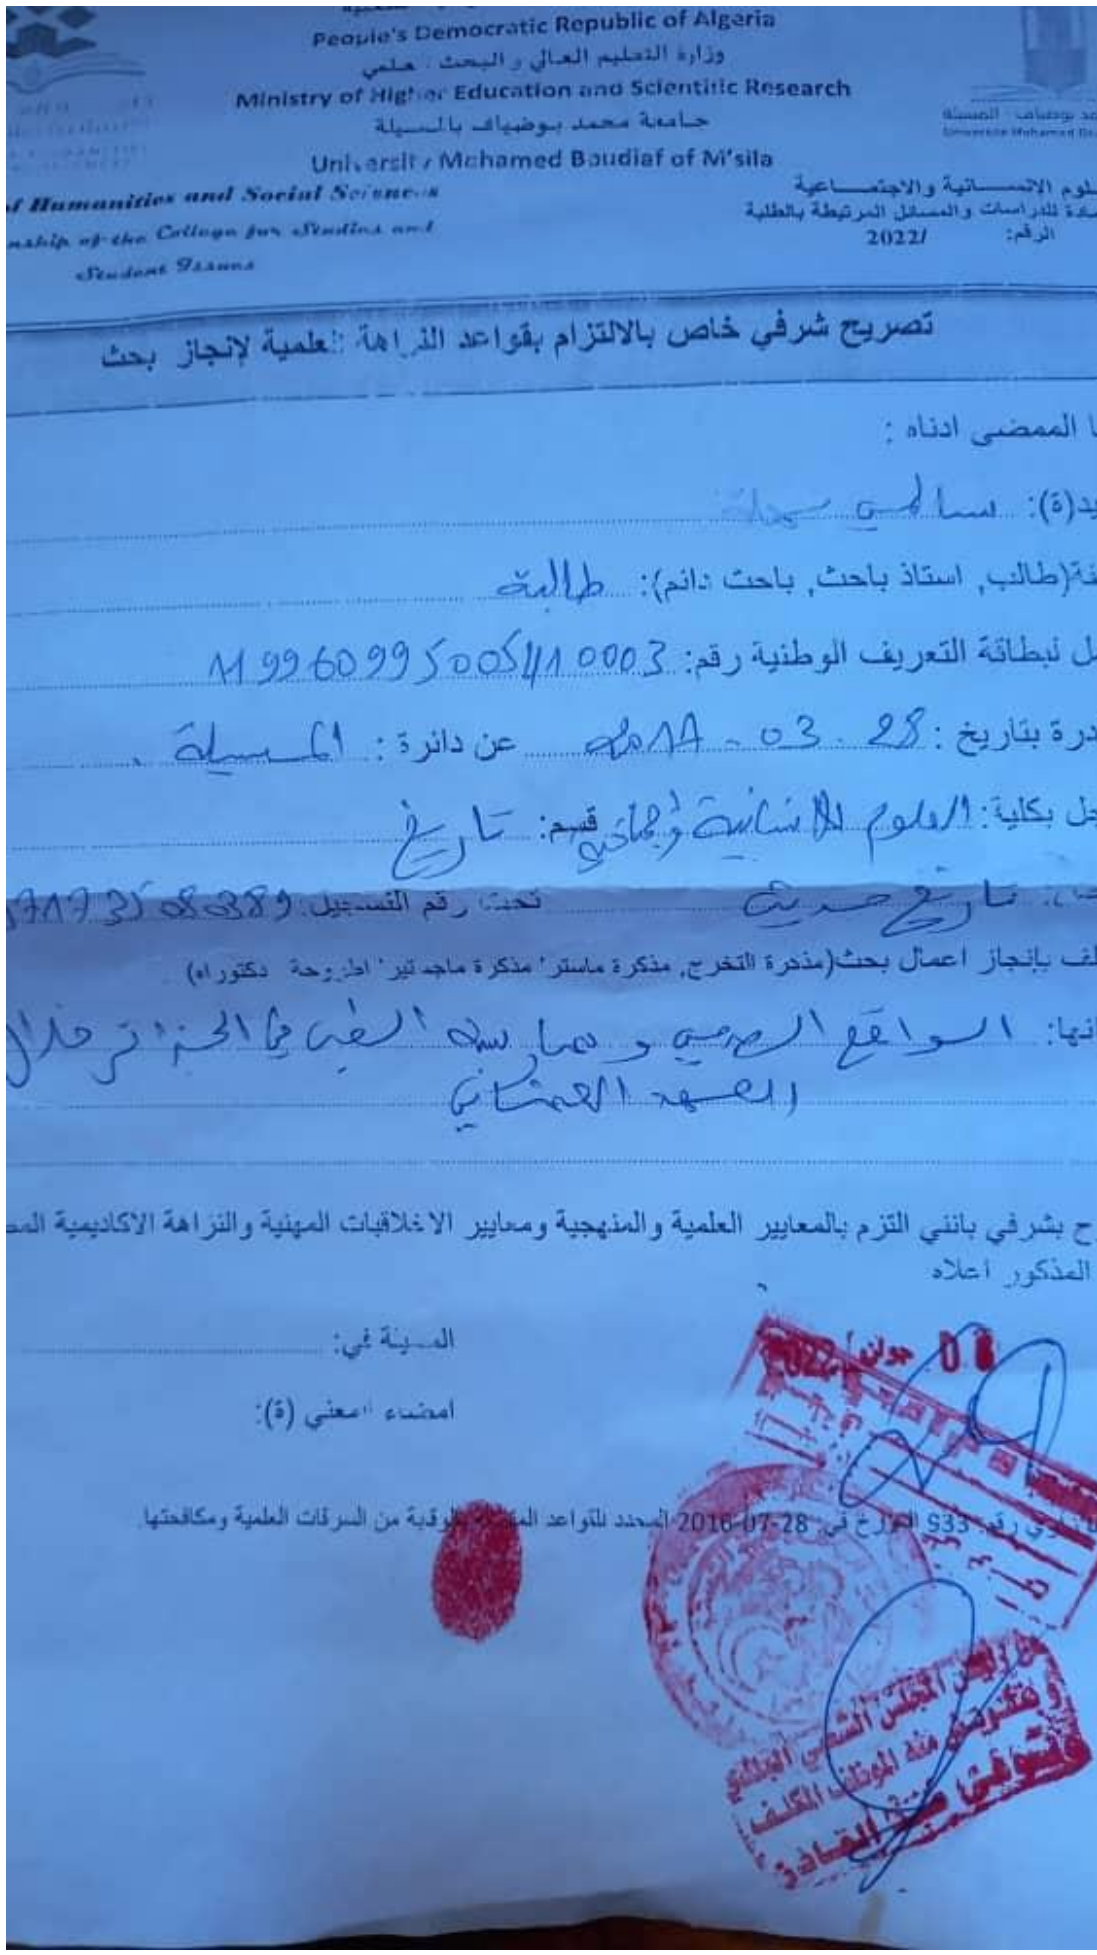 People's Democratic Republic of Algeria
وزارة التعليم العالي والبحث علمي
Ministry of Higher Education and Scientific Research
جامعة محمد بوضياف بالمسيلة
University Mohamed Boudiaf of M'sila
of Humanities and Social Sciences
nship of the College for Studies and
Student Issues
لوم الانسانية والاجتماعية
ادة للدراسات والمسائل المرتبطة بالطلبة
الرقم: /2022
تصريح شرفي خاص بالالتزام بقواعد النزاهة العلمية لإنجاز بحث
ا الممضي ادناه :
يد(ة): سالمي
فة(طالب, استاذ باحث, باحث دائم): طالبة
ل لبطاقة التعريف الوطنية رقم:
درة بتاريخ : 28 . 03 - 2017 عن دائرة : المسيلة .
جل بكلية: العلوم الانسانية قسم: تاريخ
تاريخ حديث تحت رقم التسجيل:
لف بإنجاز اعمال بحث(مذكرة التخرج, مذكرة ماستر، مذكرة ماجستير، اطروحة دكتوراه)
انها: الواقع الصحي و ممارسة الطب في الجزائر خلال
العهد العثماني
ح بشرفي بانني التزم بالمعايير العلمية والمنهجية ومعايير الاخلاقيات المهنية والنزاهة الاكاديمية المط
المذكور اعلاه
المسيلة في:
امضاء المعني (ة):
06 جوان 2022
رقم 933 المؤرخ في 28-07-2016 المحدد للقواعد المتعلقة بالوقاية من السرقات العلمية ومكافحتها.
رئيس المجلس الشعبي البلدي
و بتفويض منه الموظف المكلف